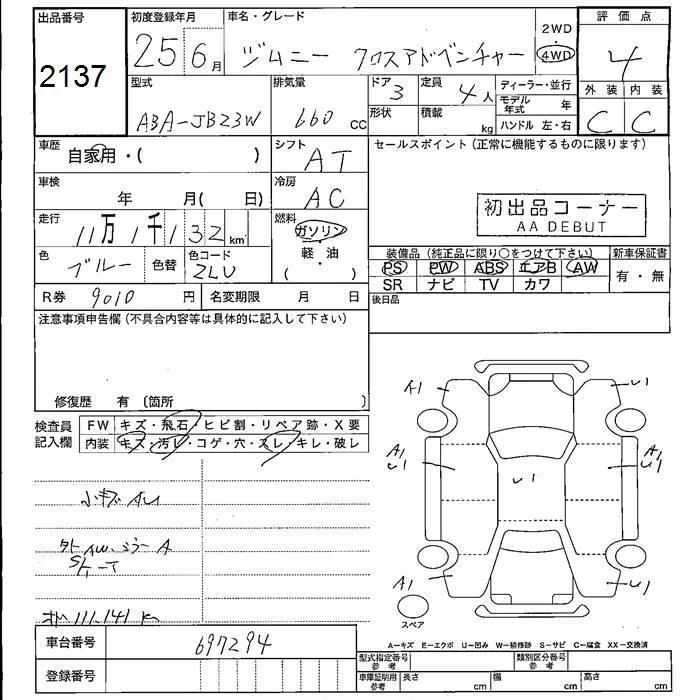 出品番号 2137
初度登録年月 25年6月
車名・グレード ジムニー クロスアドベンチャー
2WD・4WD
評価点 4
外装 内装
C C
型式 ABA-JB23W
排気量 660 CC
ドア 3
形状
定員 4人
積載 kg
ディーラー・並行
モデル年式 年
ハンドル 左・右
車歴 自家用・( )
シフト AT
セールスポイント(正常に機能するものに限ります)
車検 年 月( 日)
冷房 AC
初出品コーナー
AA DEBUT
走行 11万1千132 km
燃料 ガソリン・軽・油( )
色 ブルー 色替
色コード ZLU
装備品(純正品に限り○をつけて下さい)
PS PW ABS エアB AW
SR ナビ TV カワ
新車保証書
有・無
R券 9010円
名変期限 月 日
後日品
注意事項申告欄(不具合内容等は具体的に記入して下さい)
修復歴 有〔箇所 〕
検査員記入欄
FW キズ・飛石・ヒビ割・リペア跡・X要
内装 キズ・汚レ・コゲ・穴・スレ・キレ・破レ
A1 U1
A1 U1
U1
A1 U1
A1 U1
小キズ AU
スペア
A-キズ E-エクボ U-凹み W-補修跡 S-サビ C-腐食 XX-交換済
車台番号 697294
登録番号
型式指定番号 参考
類別区分番号 参考
車庫証明用 参考 長さ cm 幅 cm 高さ cm